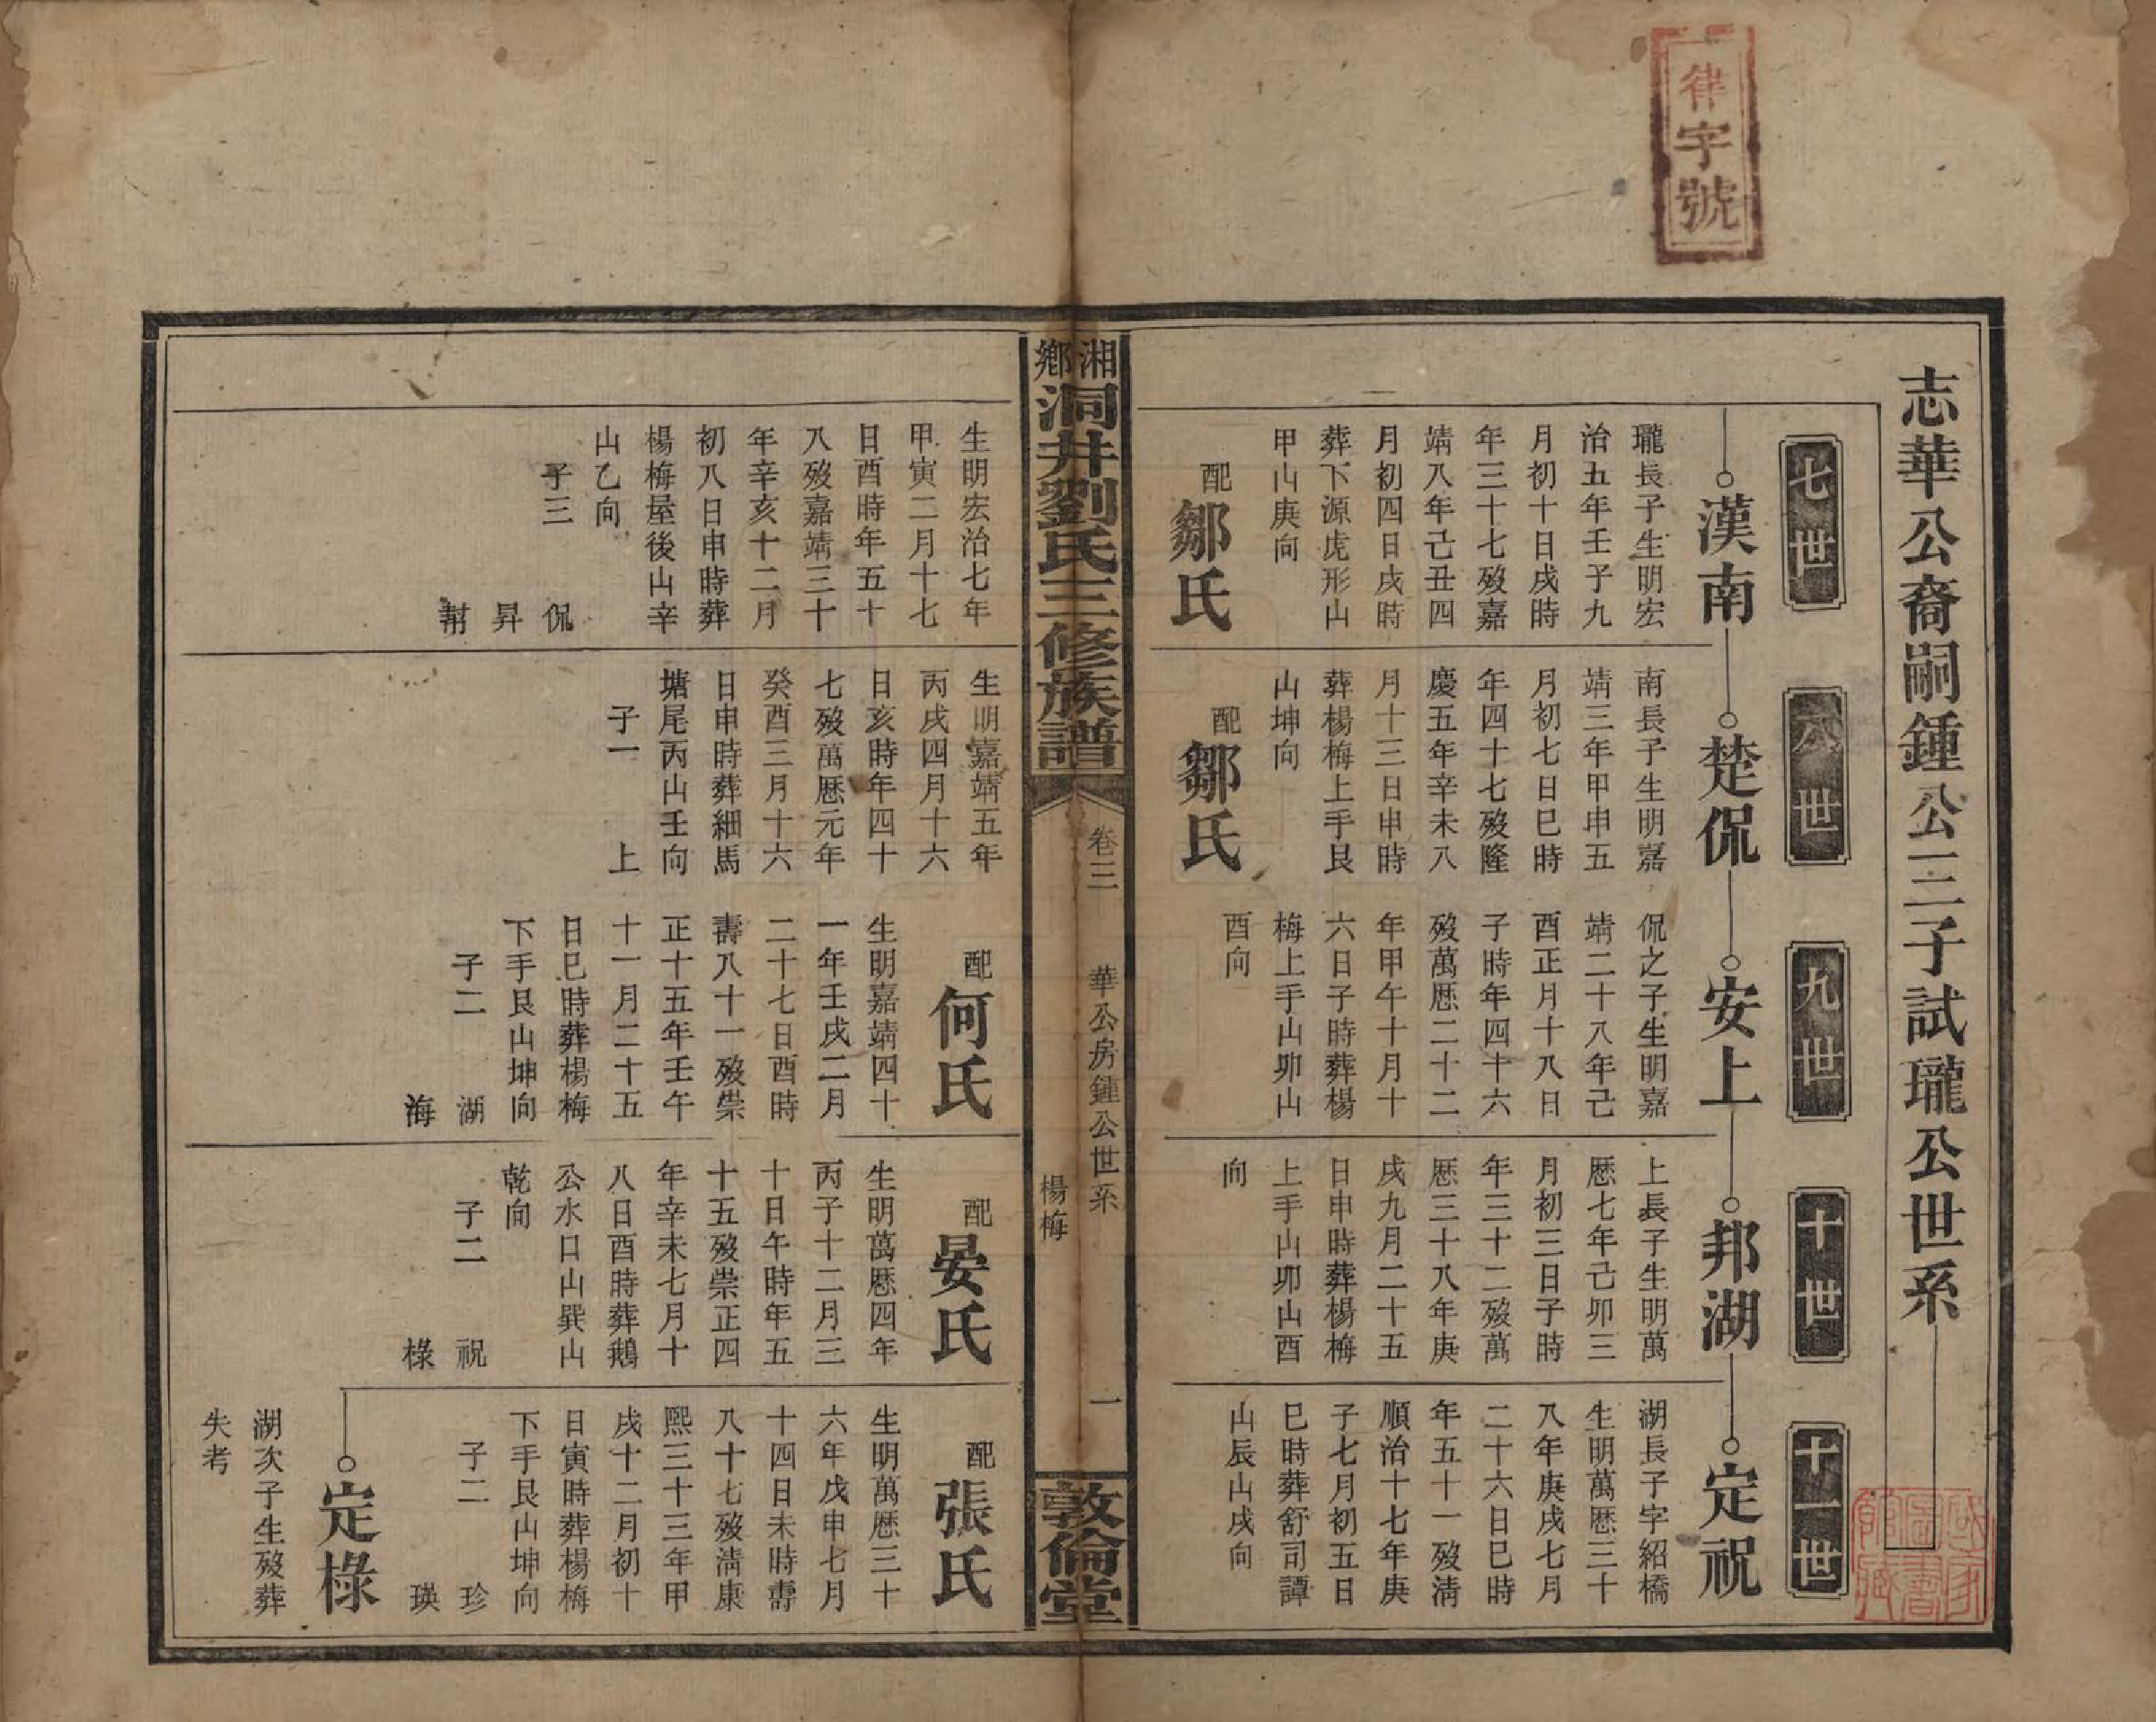 律字號
志華公裔嗣鍾公三子試瓏公世系
七世
漢南
瓏長子生明宏
治五年壬子九
月初十日戌時
年三十七歿嘉
靖八年己丑四
月初四日戌時
葬下源虎形山
甲山庚向
配鄒氏
八世
楚侃
南長子生明嘉
靖三年甲申五
月初七日巳時
年四十七歿隆
慶五年辛未八
月十三日申時
葬楊梅上手艮
山坤向
配鄒氏
九世
安上
侃之子生明嘉
靖二十八年己
酉正月十八日
子時年四十六
歿萬厯二十二
年甲午十月十
六日子時葬楊
梅上手山夘山
酉向
十世
邦湖
上長子生明萬
厯七年己卯三
月初三日子時
年三十二歿萬
厯三十八年庚
戌九月二十五
日申時葬楊梅
上手山夘山酉
向
十一世
定祝
湖長子字紹橋
生明萬厯三十
八年庚戌七月
二十六日巳時
年五十一歿淸
順治十七年庚
子七月初五日
巳時葬舒司譚
山辰山戌向
湘鄉洞井劉氏三修族譜
卷三
華公房鍾公世系
楊梅
一
敦倫堂
生明宏治七年
甲寅二月十七
日酉時年五十
八歿嘉靖三十
年辛亥十二月
初八日申時葬
楊梅屋後山辛
山乙向
子三
侃
昇
幇
生明嘉靖五年
丙戌四月十六
日亥時年四十
七歿萬厯元年
癸酉三月十六
日申時葬細馬
塘尾丙山壬向
子一
上
配何氏
生明嘉靖四十
一年壬戌二月
二十七日酉時
壽八十一歿崇
正十五年壬午
十一月二十五
日巳時葬楊梅
下手艮山坤向
子二
湖
海
配晏氏
生明萬厯四年
丙子十二月三
十日午時年五
十五歿崇正四
年辛未七月十
八日酉時葬鵝
公水口山巽山
乾向
子二
祝
椂
配張氏
生明萬厯三十
六年戊申七月
十四日未時壽
八十七歿淸康
熙三十三年甲
戌十二月初十
日寅時葬楊梅
下手艮山坤向
子二
珍
瑛
定椂
湖次子生歿葬
失考